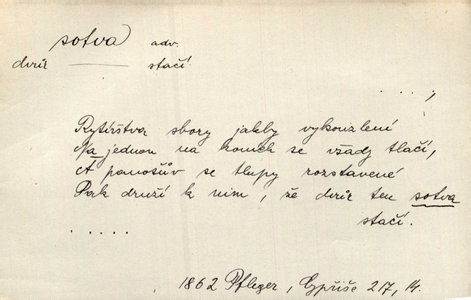 sotva adv.
dvůr ——— stačí
. . . . ;
Rytířstva sbory jakby vykouzlení
Na jednou na koních se vzady tlačí,
A panošův se tlupy rozstavené
Pak druží k nim, že dvůr ten sotva
stačí.
. . . . .
1862 Pfleger, Cypřiše 217, 14.